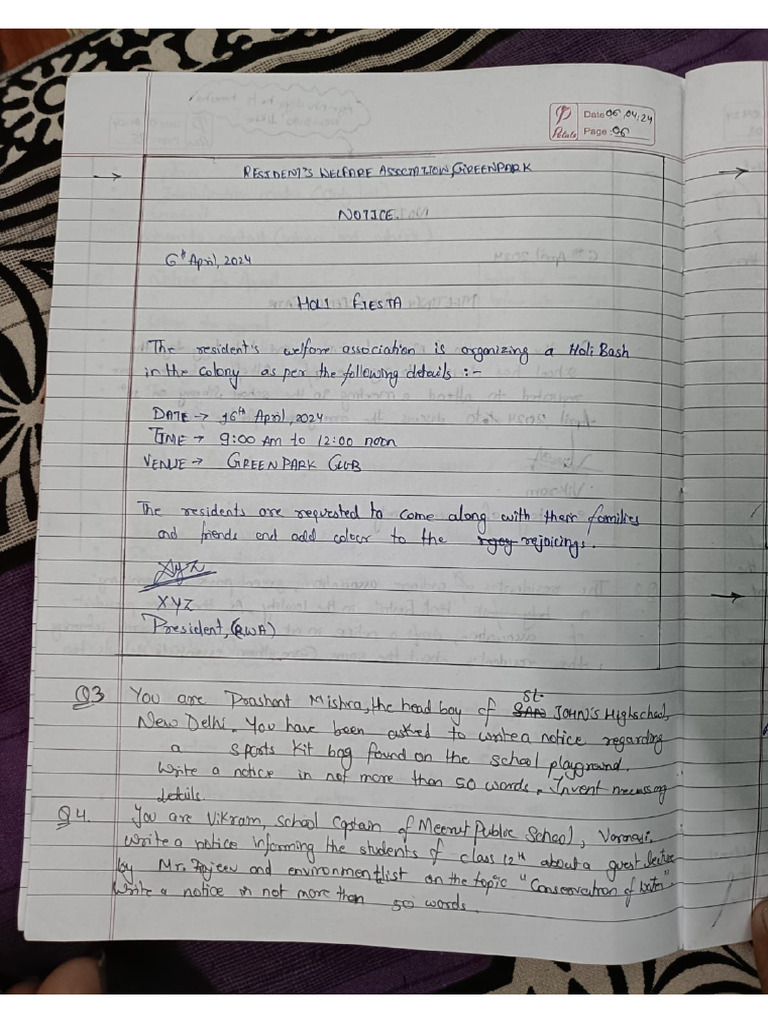 Date 06.04.24
Page 06
RESIDENT'S WELFARE ASSOCIATION, GREENPARK
NOTICE
6th April, 2024
HOLI FIESTA
The resident's welfare association is organizing a Holi Bash
in the colony as per the following details :-
DATE → 16th April, 2024
TIME → 9:00 Am to 12:00 noon
VENUE → GREEN PARK CLUB
The residents are requested to come along with their families
and friends and add colour to the rejoicings.
Xyz
XYZ
President, (RWA)
Q3 You are Prashant Mishra, the head boy of St. JOHN'S Highschool,
New Delhi. You have been asked to write a notice regarding
a sports kit bag found on the school playground.
Write a notice in not more than 50 words. Invent necessary
details.
Q4. You are Vikram, School Captain of Meerut Public School, Varanasi.
Write a notice informing the students of class 12th about a guest lecture
by Mr. Rajeev and environmentlist on the topic "Conservation of
Write a notice in not more than 50 words.